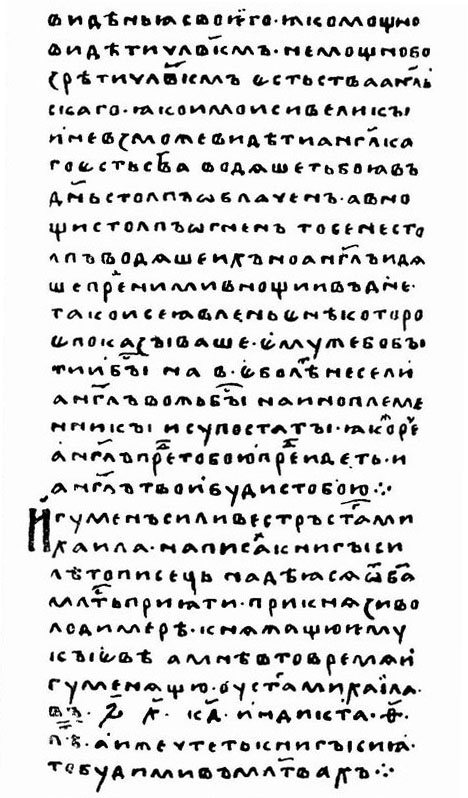 видѣньꙗ своѥго ꙗкомощно
видѣтичл҃вкмъ · немощнобо
зрѣтичл҃вкмъ єстьстваанг҃ль
скаго · ꙗкоимоисивеликꙑ
иневзможевидѣтианг҃лка
гоєстьст҃ва водѧшетьбоꙗвъ
дн҃ьстолпъѡблаченъ · авно
щистолпъѡгненъ тосенесто
лпъводѧшеихъноанг҃лъидѧ
шепре҃нимивнощиивъдн҃е ·
такоисеꙗвленьєнѣкоторо
єпоказꙑваше · ємужебобꙑ
тиибꙑ на в · єболѣнесели
анг҃лъвожьбꙑ наиноплеме
нникꙑ исупостатꙑ · ꙗкоре҃
анг҃лъпре҃тобоюпре҃идеть · и
анг҃лътвоибудистобою ⁘
Игуменъсиливестръст҃гми
хаила · написа҃книгꙑси
лѣтописець надѣꙗсѧѿба҃
млс҃тьприꙗти · прикнѧзиво
лодимерѣ · кнѧжащюиму
кꙑєвѣ амнѣвтовремѧи
гуменѧщю · оуст҃гмихаила ·
въ · ҂ѕ҃ · х҃ · кд҃ · индикта · ѳ҃ ·
л҃ѣ · аижечтетькнигꙑсиꙗ ·
тобудимивъмлт҃вахъ ⁘